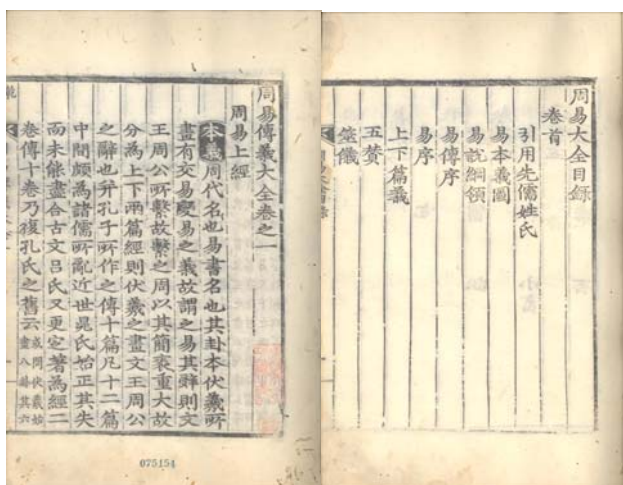 周易大全目録
卷首
引用先儒姓氏
易本義圖
易說綱領
易傳序
易序
上下篇義
五贊
筮儀
周易傳義大全卷之一
周易上經
本義周代名也易書名也其卦本伏羲所
畫有交易變易之義故謂之易其辭則文
王周公所繫故繫之周以其簡袠重大故
分為上下兩篇經則伏羲之畫文王周公
之辭也并孔子所作之傳十篇凡十二篇
中間頗為諸儒所亂近世晁氏始正其失
而未能盡合古文呂氏又更定著為經二
卷傳十卷乃復孔氏之舊云或問伏羲始畫八卦其六
075154